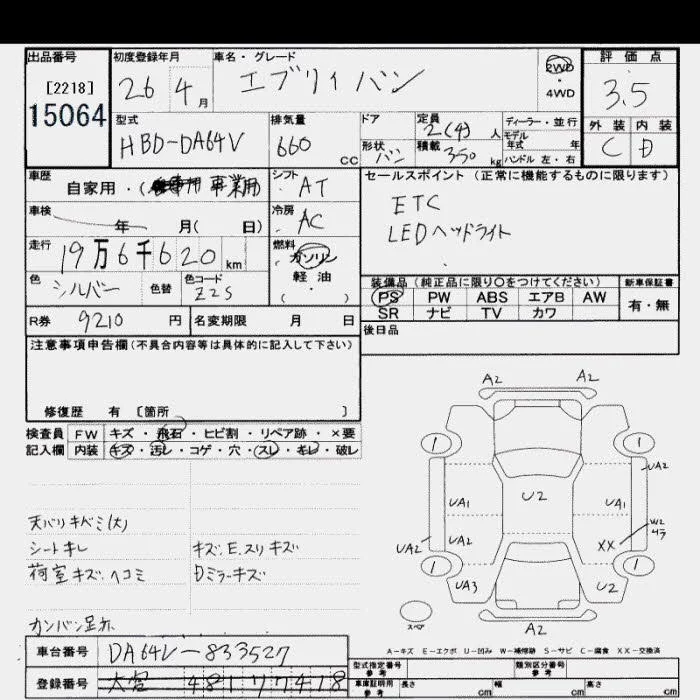 出品番号
[2218]
15064
初度登録年月
26 4月
車名・グレード
エブリィバン
2WD
・
4WD
評価点
3.5
外装 内装
C D
型式
HBD-DA64V
排気量
660 CC
ドア
形状
バン
定員
2(4)人
積載
350 kg
ディーラー・並行
モデル
年式 年
ハンドル 左・右
車歴
自家用・( 事業用)
シフト
AT
車検
年 月( 日)
冷房
AC
走行
19万6千620km
燃料
ガソリン
軽・油
( ・ )
色
シルバー
色替
色コード
Z2S
R券 9210円
名変期限 月 日
セールスポイント(正常に機能するものに限ります)
ETC
LEDヘッドライト
装備品(純正品に限り〇をつけてください)
PS PW ABS エアB AW
SR ナビ TV カワ
新車保証書
有・無
後日品
注意事項申告欄(不具合内容等は具体的に記入して下さい)
修復歴 有 [箇所 ]
検査員
記入欄
FW キズ・飛石・ヒビ割・リペア跡・×要
内装 キズ・汚レ・コゲ・穴・スレ・キレ・破レ
天バリキバミ(大)
シートキレ
荷室キズ・ヘコミ
キズ.E.スリキズ
Dミラーキズ
A2 A2
1 1
UA2
UA1 U2 UA1
W2
UA2 UA2 XX
1 1
UA3 U2
スペア
A2
A-キズ E-エクボ U-凹み W-補修跡 S-サビ C-腐食 XX-交換済
車台番号 DA64V-833527
登録番号 大宮 480
型式指定番号
参考
類別区分番号
参考
車庫証明用
参考
長さ cm 幅 cm 高さ cm